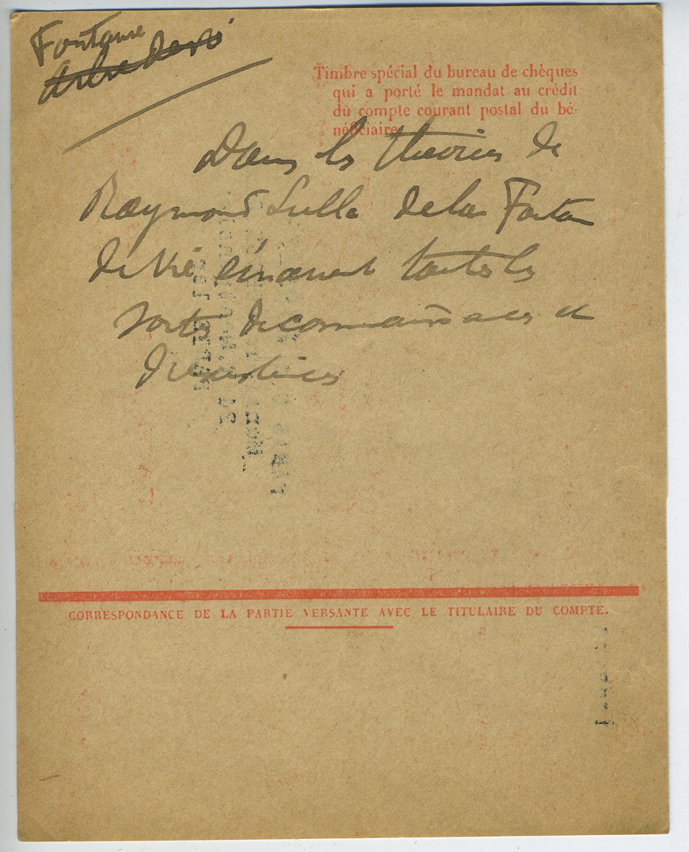 Fontaine
Arbre de vie
Timbre spécial du bureau de chèques
qui a porté le mandat au crédit
du compte courant postal du bé-
néficiaire
Dans les théories de
Raymond Lulle de la Fontaine
de Vie émanent toutes les
sortes de connaissances et
CORRESPONDANCE DE LA PARTIE VERSANTE AVEC LE TITULAIRE DU COMPTE.